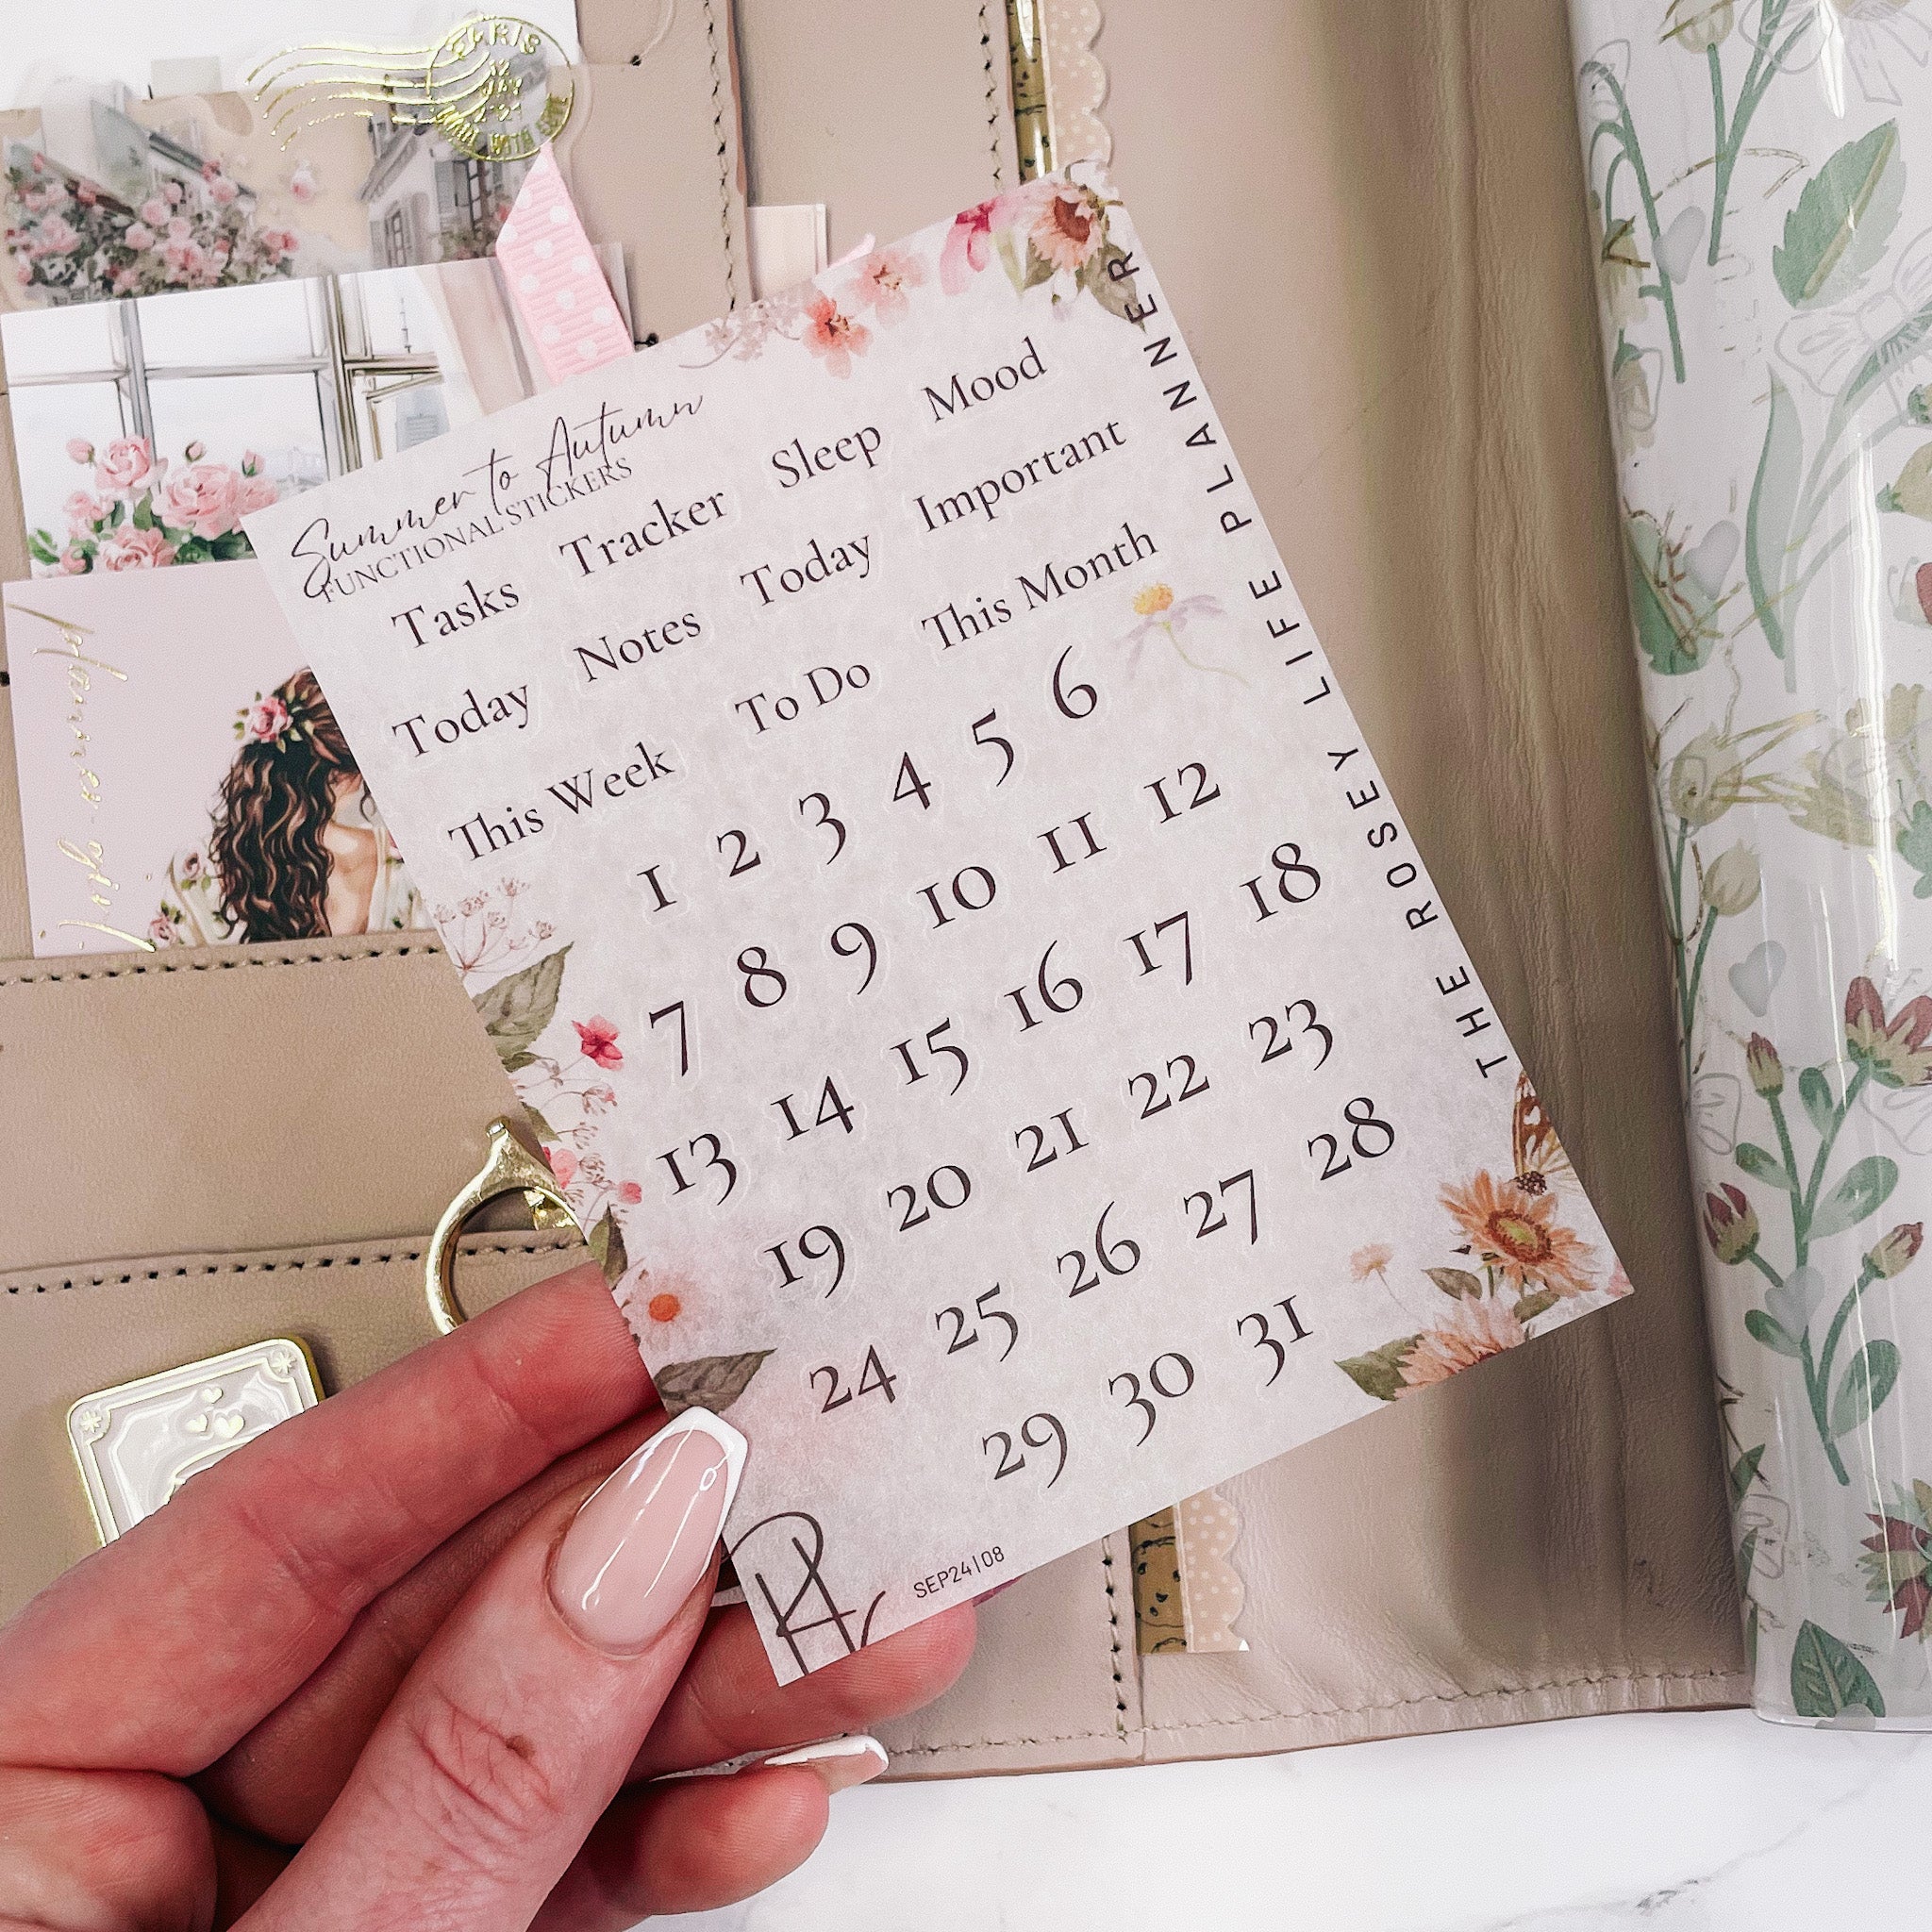 PARIS
Summer to Autumn
FUNCTIONAL STICKERS
Tasks Tracker Sleep Mood
Today Notes Today Important
This Week To Do This Month
1 2 3 4 5 6
7 8 9 10 11 12
13 14 15 16 17 18
19 20 21 22 23
24 25 26 27 28
29 30 31
SEP24|08
THE ROSEY LIFE PLANNER